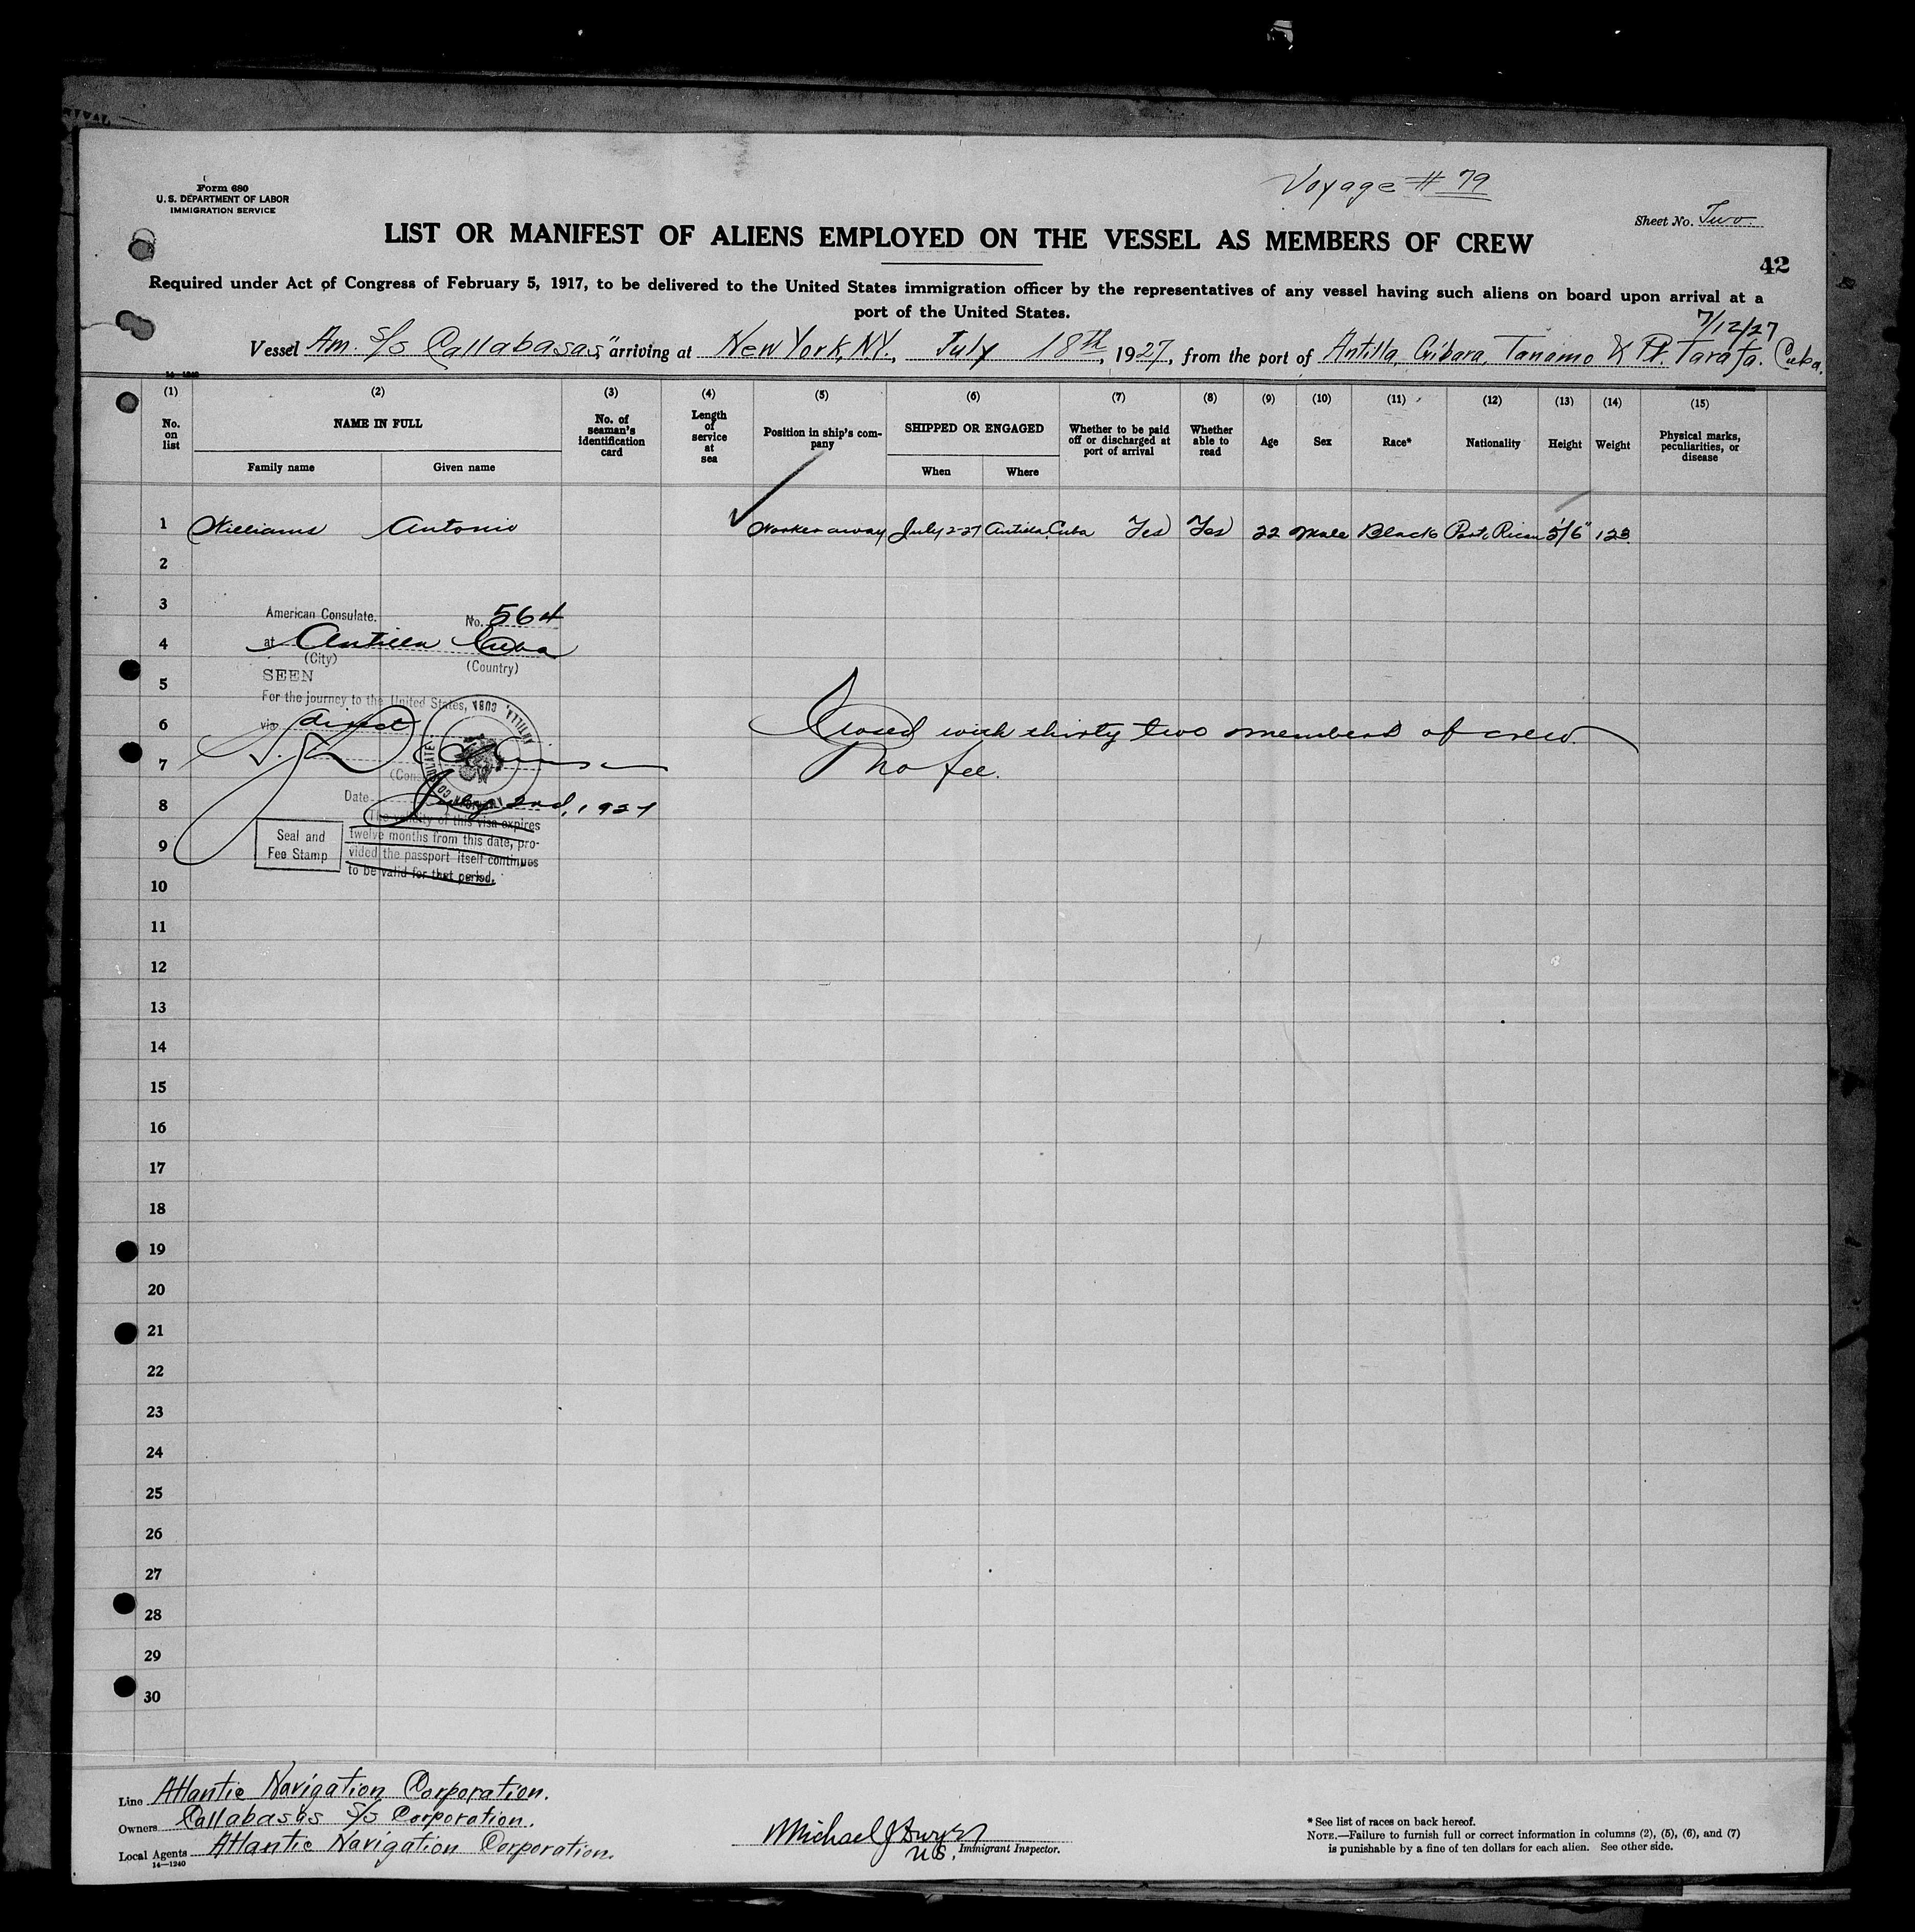 Form 680
U. S. DEPARTMENT OF LABOR
IMMIGRATION SERVICE
Voyage # 79
Sheet No. Two
LIST OR MANIFEST OF ALIENS EMPLOYED ON THE VESSEL AS MEMBERS OF CREW
42
Required under Act of Congress of February 5, 1917, to be delivered to the United States immigration officer by the representatives of any vessel having such aliens on board upon arrival at a
port of the United States.
7/12/27
Vessel Am. S/S Callabasas" arriving at New York, N.Y., July 18th, 1927, from the port of Antilla, Gibara, Tanamo & Pt. Tarafa. Cuba.
14-1240
(1) (2) (3) (4) (5) (6) (7) (8) (9) (10) (11) (12) (13) (14) (15)
No. on list
NAME IN FULL
Family name Given name
No. of seaman's identification card
Length of service at sea
Position in ship's company
SHIPPED OR ENGAGED
When Where
Whether to be paid off or discharged at port of arrival
Whether able to read
Age
Sex
Race*
Nationality
Height
Weight
Physical marks, peculiarities, or disease
1 Williams Antonio Worker away July 2-27 Antilla, Cuba Yes Yes 22 Male Black Porto Rican 5'/6" 123
2
3
American Consulate. No. 564
4
at Antilla Cuba
(City) (Country)
SEEN
5
For the journey to the United States,
6
via direct
Closed with thirty two members of crew.
7
No fee.
8
Date July 2nd, 1927
The validity of this visa expires
twelve months from this date, pro-
vided the passport itself continues
to be valid for that period.
Seal and
Fee Stamp
9
10
11
12
13
14
15
16
17
18
19
20
21
22
23
24
25
26
27
28
29
30
Line Atlantic Navigation Corporation.
Owners Callabasas S/S Corporation.
Local Agents Atlantic Navigation Corporation.
14—1240
Michael J Dwyer
U.S. Immigrant Inspector.
* See list of races on back hereof.
NOTE.—Failure to furnish full or correct information in columns (2), (5), (6), and (7)
is punishable by a fine of ten dollars for each alien. See other side.